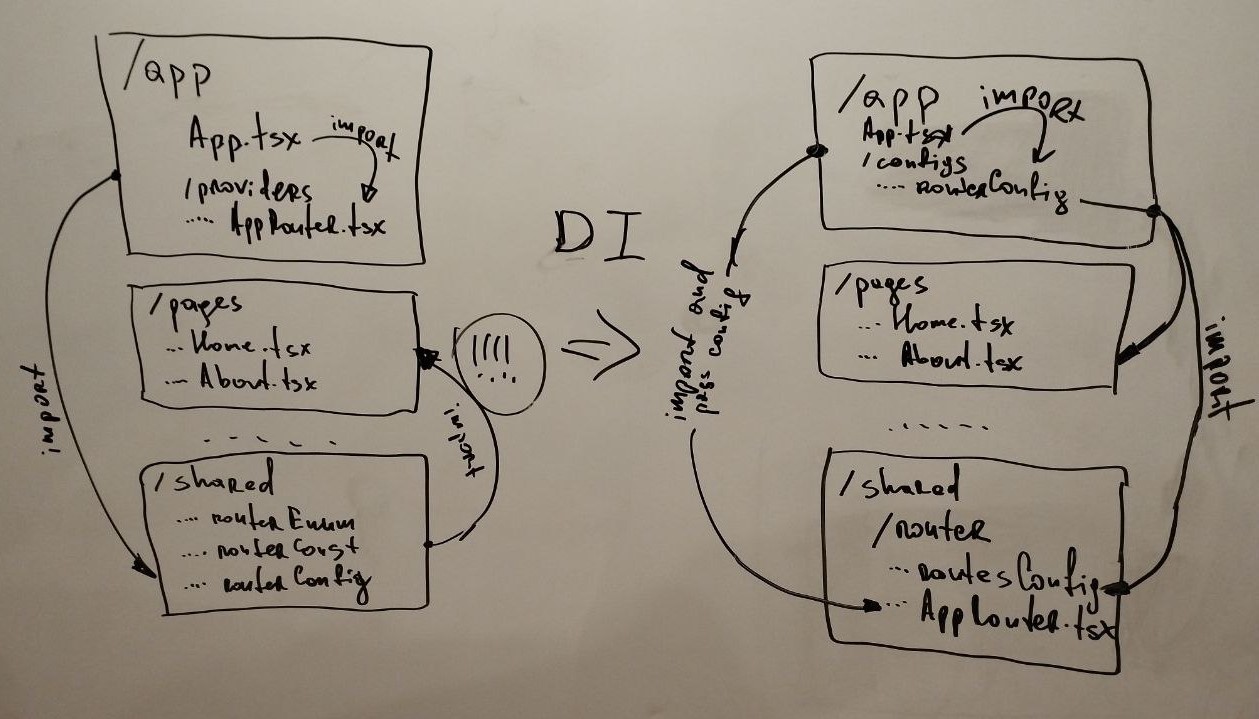 /app
App.tsx import
/providers
..... AppRouter.tsx
/pages
... Home.tsx
... About.tsx
!!!!
import
import
. . . . . .
/shared
.... routerEnum
.... routerConst
.... routerConfig
DI
=>
/app import
App.tsx
/configs
.... routerConfig
import and
pass config
/pages
... Home.tsx
... About.tsx
import
......
/shared
/router
... routesConfig
... AppRouter.tsx